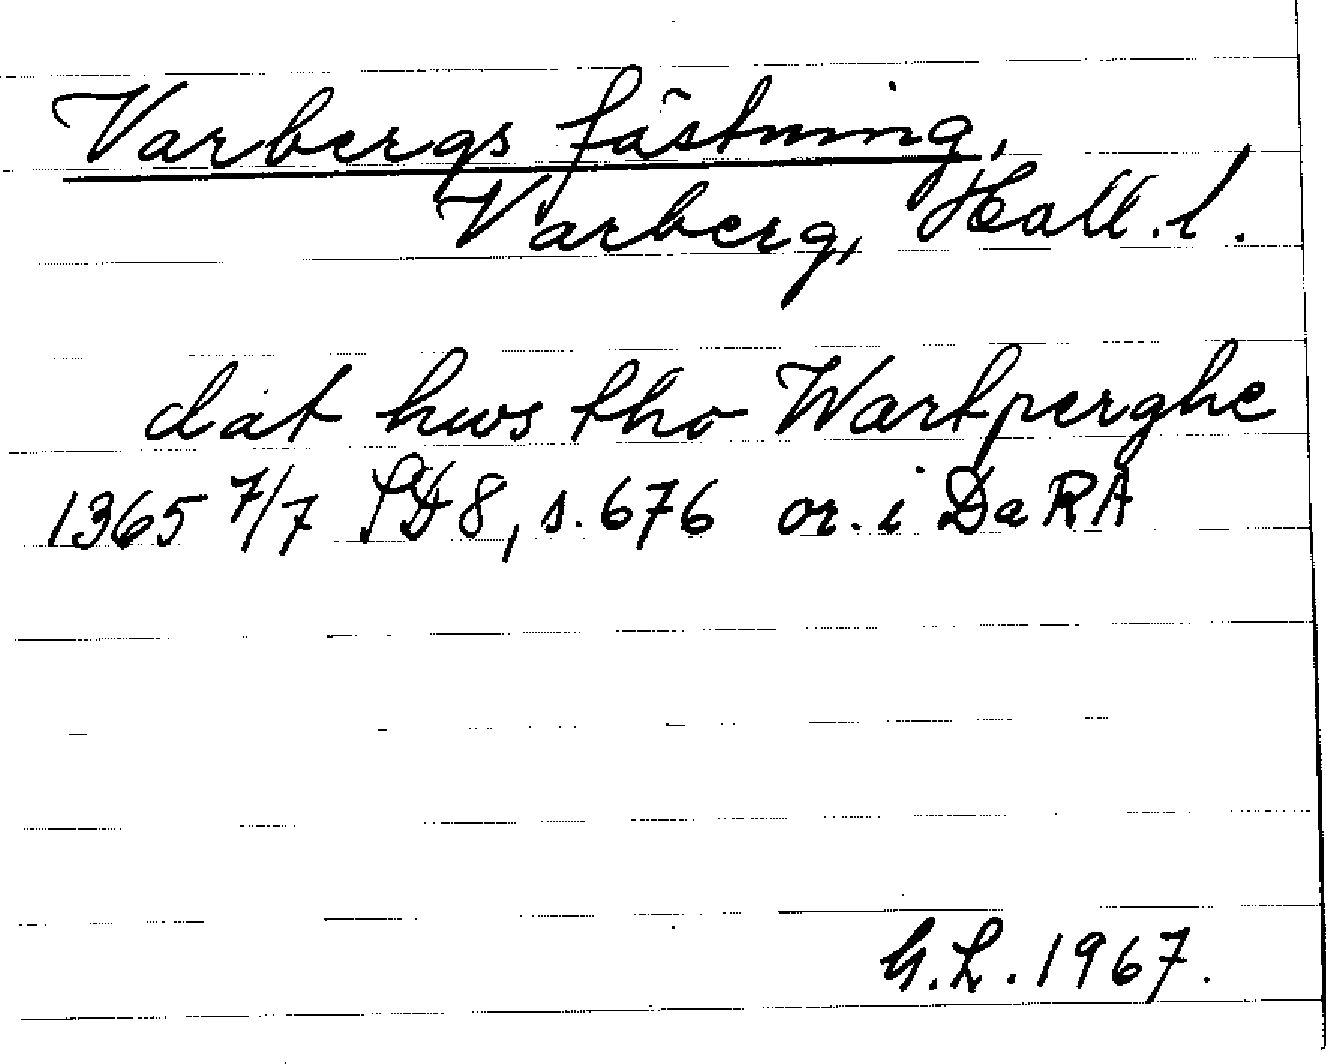 Varbergs fästning,
Varberg, Hall. l.
dat hws tho Wartperghe
1365 7/7 SD 8, s. 676 or. i DaRA
G.L. 1967.